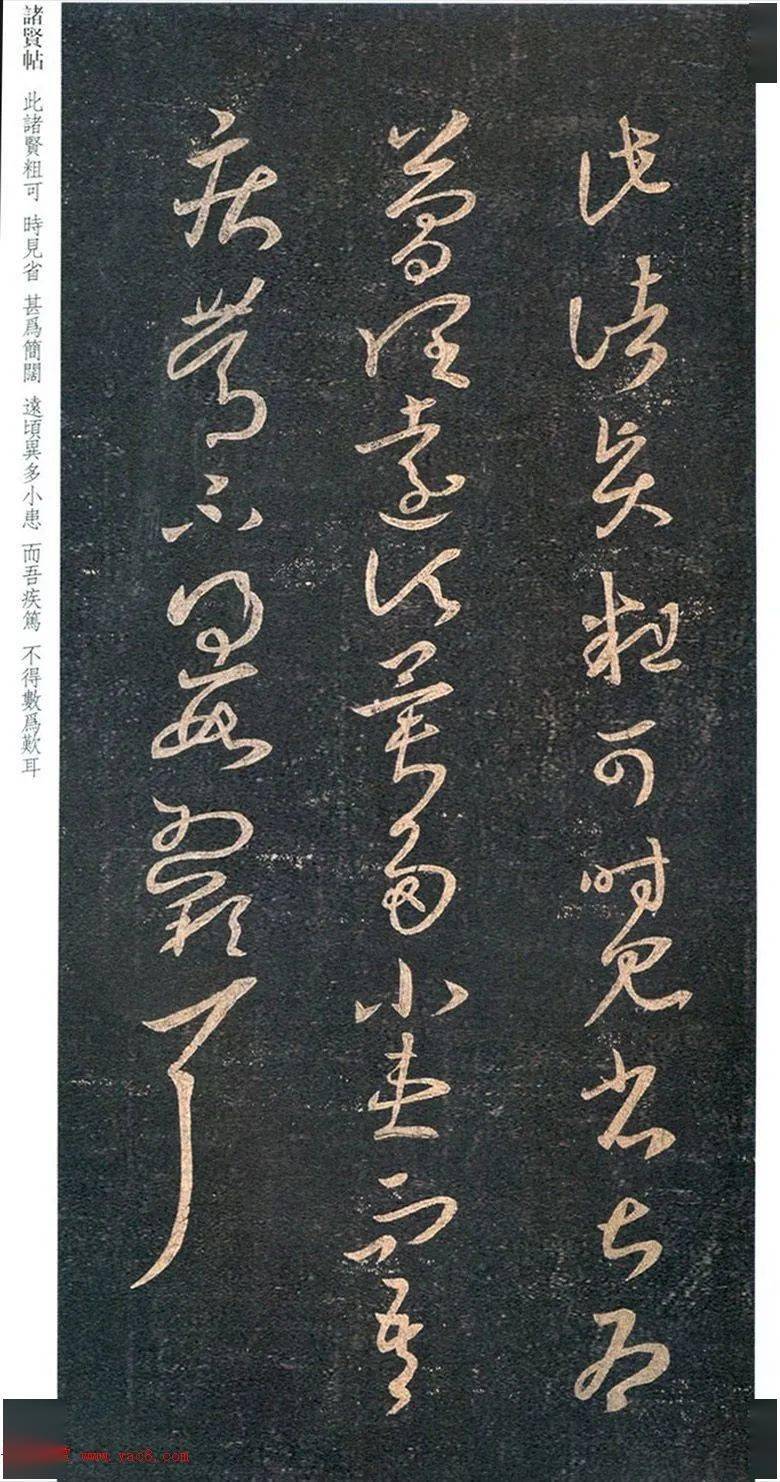 此諸賢粗可時見省甚爲
簡闊遠頃異多小患而吾
疾篤不得數爲歎耳
諸賢帖 此諸賢粗可 時見省 甚爲簡闊 遠頃異多小患 而吾疾篤 不得數爲歎耳
www.yac8.com